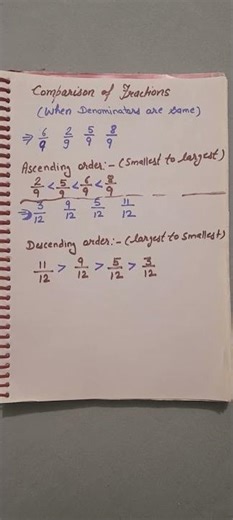 Comparison of Fractions
(When Denominators are same)
⇒ 6/9 2/9 5/9 8/9
Ascending order:- (Smallest to largest)
2/9 < 5/9 < 6/9 < 8/9
⇒ 3/12 9/12 5/12 11/12
Descending order:- (largest to smallest)
11/12 > 9/12 > 5/12 > 3/12